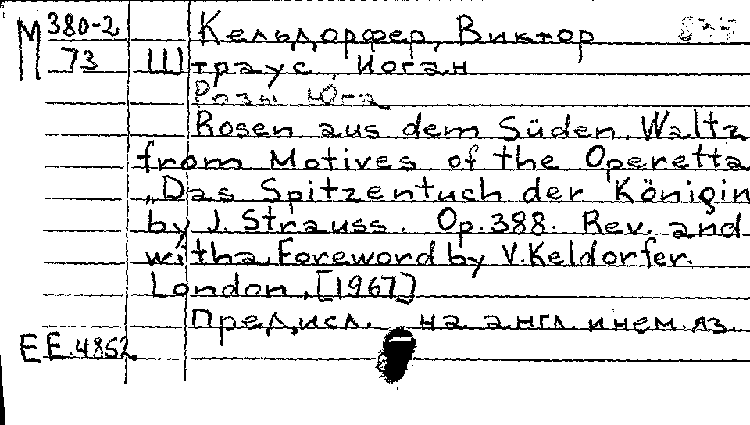 М 380-2 Кельдорфер, Виктор
73 Штраус, Иоган
Розы Юга
Rosen aus dem Süden. Waltz
from Motives of the Operetta
„Das Spitzentuch der Königin
by J. Strauss. Op.388. Rev. and
with a Foreword by V. Keldorfer.
London, [1967]
Предисл. на англ. и нем. яз.
EE.4852